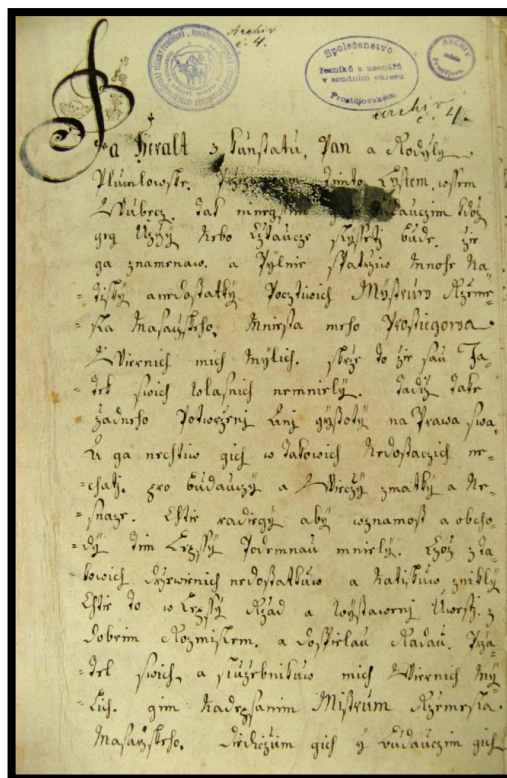 Archiv
č. 4.
Společenstvo
řezníků a uzenářů
v soudním okresu
Prostějovském.
ARCHIV
města
Prostějova
archiv 4.
Ja Heralt z Kunstatu, Pan a Rodyly
Plumlowske. tjmto Lystem, wssem
Wubecz, tak nineyssim budauczim kdoz
geg Uzrÿ Nebo Cztaucze slysseti bude. Ze
ga znamenaw. a Pylnie spatrziw mnohe Na-
-tisky a nedostatkÿ Pocztiwich Mÿstruw Rzeme-
-sla Masarzskeho, Miesta meho Prostiegowa
Wiernich mich Mÿlich. skrze to ze sau Ja-
-tek swich wlasnich nemniely. Tadÿ take
zadneho Potwrzenj Anj gystotÿ na Prawa swa.
A ga nechtiw gich w takowich Nedostaczich ne-
-chati. pro budauczÿ a Wieczÿ zmatkÿ a Ne-
-snaze. Chtie radiegÿ abÿ wznamost a obcho-
-dÿ tim Lepssÿ Podemnau mniely. Czoz z ta-
-kowich drzewnich nedostatkuw a Natiskuw zniklÿ
Chtie to w Lepssÿ Rzad a wystawenj Uwesti. z
Dobrim Rozmislem, a dospielau Radau. Przá-
-tel swich, a sluzebnikuw mich Wiernich Mÿ
-lich. gim Nadepsanim Mistrum Rzemesla
Masarzskeho. Dediczum gich ÿ Budauczim gich